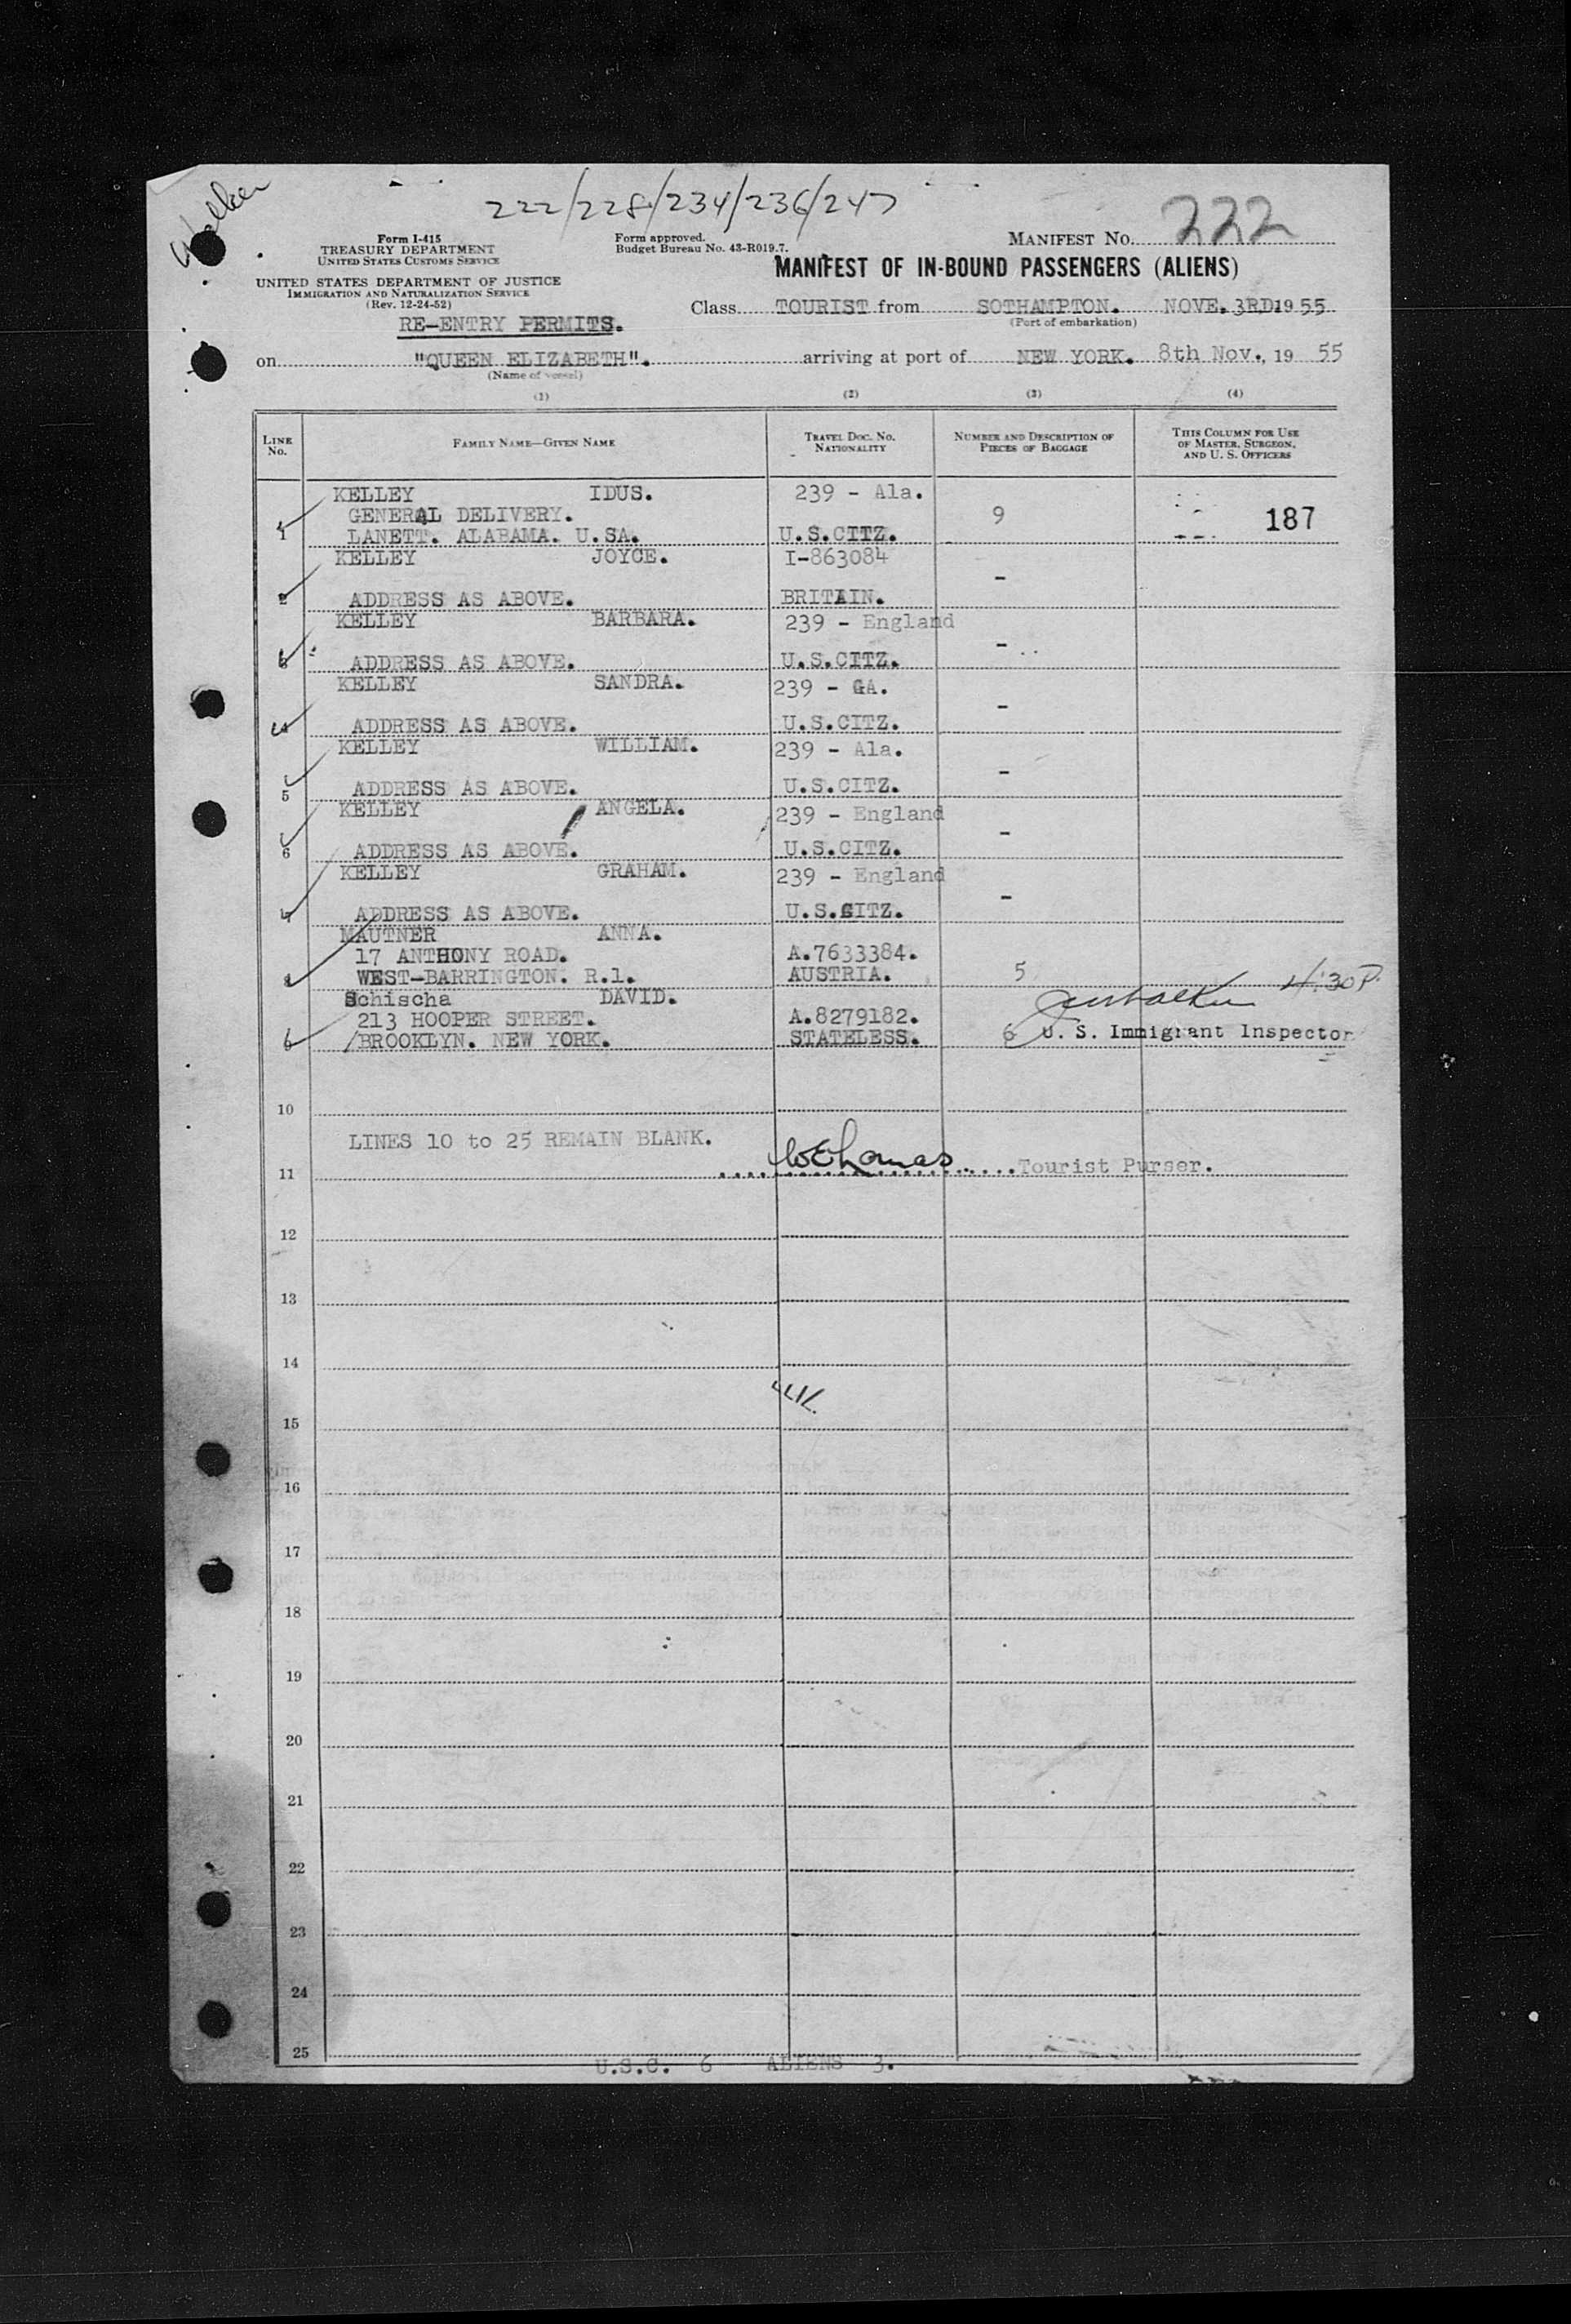 Walker
222/228/234/236/247
Form I-415
TREASURY DEPARTMENT
UNITED STATES CUSTOMS SERVICE
UNITED STATES DEPARTMENT OF JUSTICE
IMMIGRATION AND NATURALIZATION SERVICE
(Rev. 12-24-52)
RE-ENTRY PERMITS.
Form approved.
Budget Bureau No. 43-R019.7.
MANIFEST No. 222
MANIFEST OF IN-BOUND PASSENGERS (ALIENS)
Class TOURIST from SOTHAMPTON. NOVE. 3RD 1955
(Port of embarkation)
on "QUEEN ELIZABETH". arriving at port of NEW YORK. 8th Nov., 19 55
(Name of vessel)
(1) (2) (3) (4)
LINE No. FAMILY NAME—GIVEN NAME TRAVEL DOC. No. NATIONALITY NUMBER AND DESCRIPTION OF PIECES OF BAGGAGE THIS COLUMN FOR USE OF MASTER, SURGEON, AND U. S. OFFICERS
KELLEY IDUS. 239 - Ala.
GENERAL DELIVERY. 9 187
1 LANETT. ALABAMA. U.SA. U.S.CITZ.
KELLEY JOYCE. I-863084
-
2 ADDRESS AS ABOVE. BRITAIN.
KELLEY BARBARA. 239 - England
-
3 ADDRESS AS ABOVE. U.S.CITZ.
KELLEY SANDRA. 239 - GA.
-
4 ADDRESS AS ABOVE. U.S.CITZ.
KELLEY WILLIAM. 239 - Ala.
-
5 ADDRESS AS ABOVE. U.S.CITZ.
KELLEY ANGELA. 239 - England
-
6 ADDRESS AS ABOVE. U.S.CITZ.
KELLEY GRAHAM. 239 - England
-
7 ADDRESS AS ABOVE. U.S.CITZ.
MAUTNER ANNA.
17 ANTHONY ROAD. A.7633384.
8 WEST-BARRINGTON. R.1. AUSTRIA. 5
Schischa DAVID. 4:30 P.
213 HOOPER STREET. A.8279182.
BROOKLYN. NEW YORK. STATELESS. 6 U. S. Immigrant Inspector
10
LINES 10 to 25 REMAIN BLANK.
11 WEThomas Tourist Purser.
12
13
14
15
16
17
18
19
20
21
22
23
24
25
U.S.C. 6 ALIENS 3.